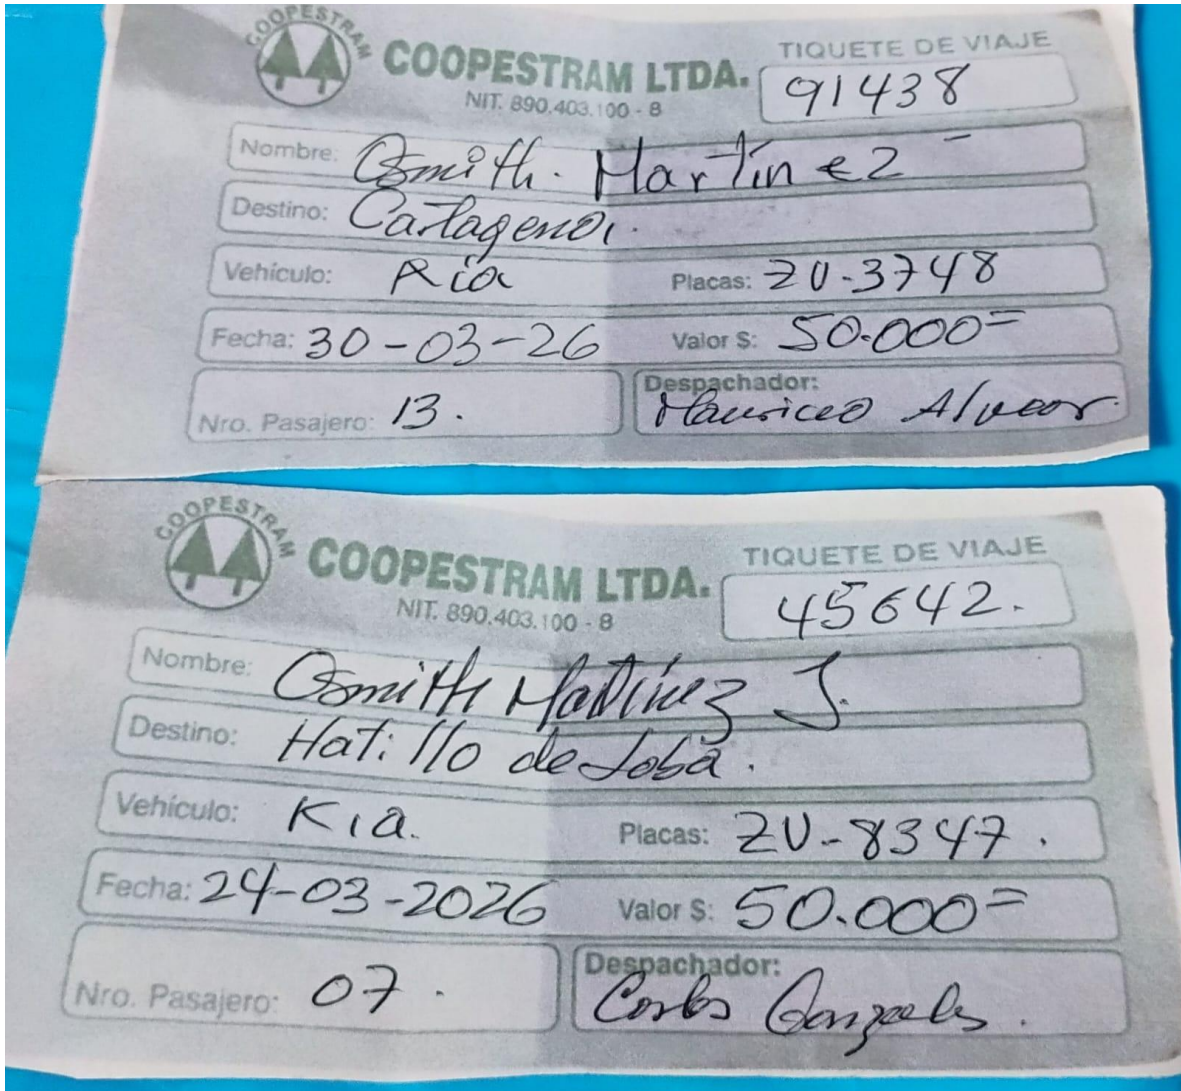 COOPESTRAM
COOPESTRAM LTDA.
NIT. 890.403.100 - 8
TIQUETE DE VIAJE
91438
Nombre: Osmith. Martínez
Destino: Cartagena.
Vehículo: Kia Placas: ZU-3748
Fecha: 30-03-26 Valor $: 50.000=
Nro. Pasajero: 13. Despachador:
Mauricio Alvear.
COOPESTRAM
COOPESTRAM LTDA.
NIT. 890.403.100 - 8
TIQUETE DE VIAJE
45642.
Nombre: Osmith Martínez J.
Destino: Hatillo de Loba.
Vehículo: Kia. Placas: ZU-8347.
Fecha: 24-03-2026 Valor $: 50.000=
Nro. Pasajero: 07. Despachador:
Carlos Gonzales.